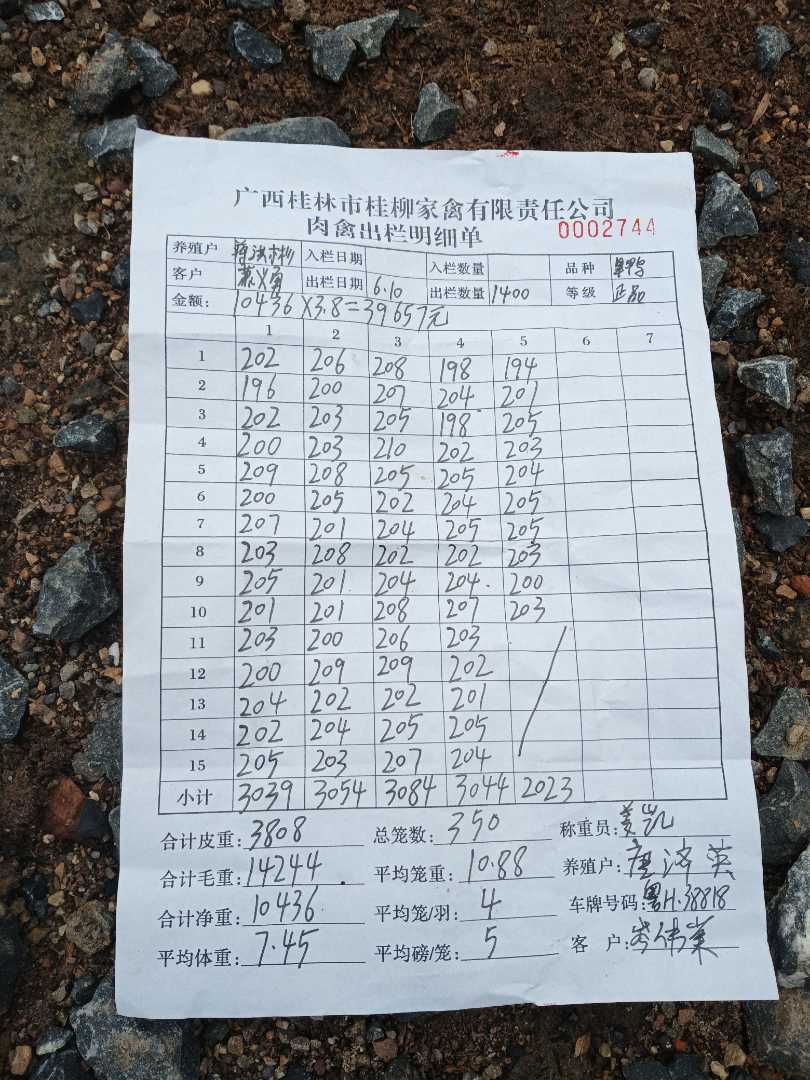 广西桂林市桂柳家禽有限责任公司
肉禽出栏明细单 0002744
养殖户 入栏日期 入栏数量 品种
客户 出栏日期 6.10 出栏数量 1400 等级 正品
金额: 10436×3.8=39657元
1 2 3 4 5 6 7
1 202 206 208 198 194
2 196 200 207 204 201
3 202 203 205 198 205
4 200 203 210 202 203
5 209 208 205 205 204
6 200 205 202 204 205
7 207 201 204 205 205
8 203 208 202 202 203
9 205 201 204 204 200
10 201 201 208 207 203
11 203 200 206 203
12 200 209 209 202
13 204 202 202 201
14 202 204 205 205
15 205 203 207 204
小计 3039 3054 3084 3044 2023
合计皮重: 3808 总笼数: 350 称重员: 姜凯
合计毛重: 14244 平均笼重: 10.88 养殖户: 唐济英
合计净重: 10436 平均笼/羽: 4 车牌号码: 粤H·38818
平均体重: 7.45 平均磅/笼: 5 客户: 岑伟業